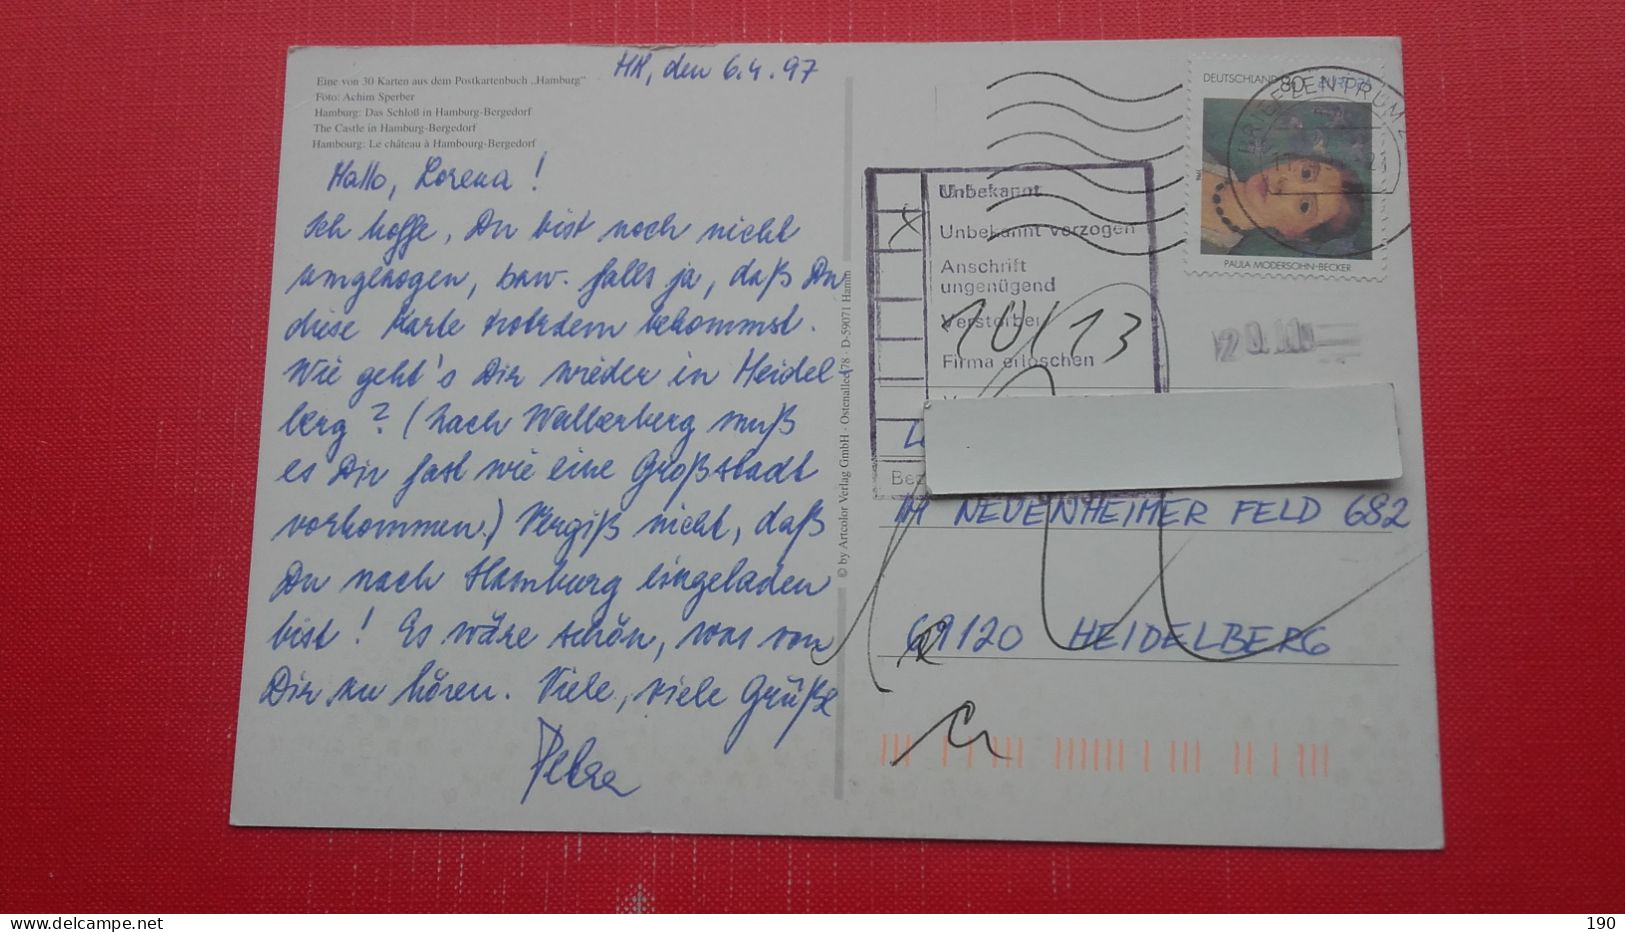 Eine von 30 Karten aus dem Postkartenbuch „Hamburg“
Foto: Achim Sperber
Hamburg: Das Schloß in Hamburg-Bergedorf
The Castle in Hamburg-Bergedorf
Hambourg: Le château à Hambourg-Bergedorf
HH, den 6.4.97
Hallo, Lorena!
Ich hoffe, Du bist noch nicht
umgezogen, bzw. falls ja, daß Du
diese Karte trotzdem bekommst.
Wie geht's Dir wieder in Heidel-
berg? (Nach Wallerberg muß
es Dir fast wie eine Großstadt
vorkommen.) Vergiß nicht, daß
Du nach Hamburg eingeladen
bist! Es wäre schön, was von
Dir zu hören. Viele, viele Grüße
Petra
© by Artcolor Verlag GmbH · Ostenallee 78 · D-59071 Hamm
DEUTSCHLAND 80
PAULA MODERSOHN-BECKER
BRIEFZENTRUM
Unbekannt
Unbekannt verzogen
Anschrift
ungenügend
Verstorben
Firma erloschen
10/13
IM NEUENHEIMER FELD 682
69120 HEIDELBERG
190